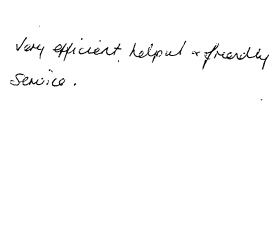 Very efficient, helpul + friendly
service.